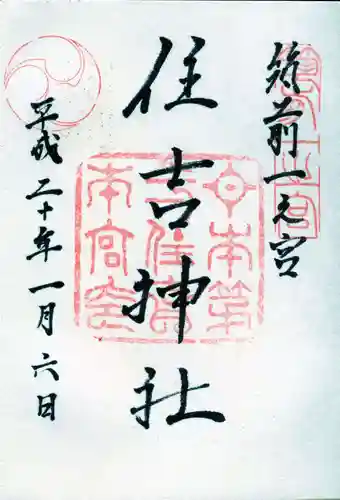 筑前一之宮
住吉神社
平成二十年一月六日